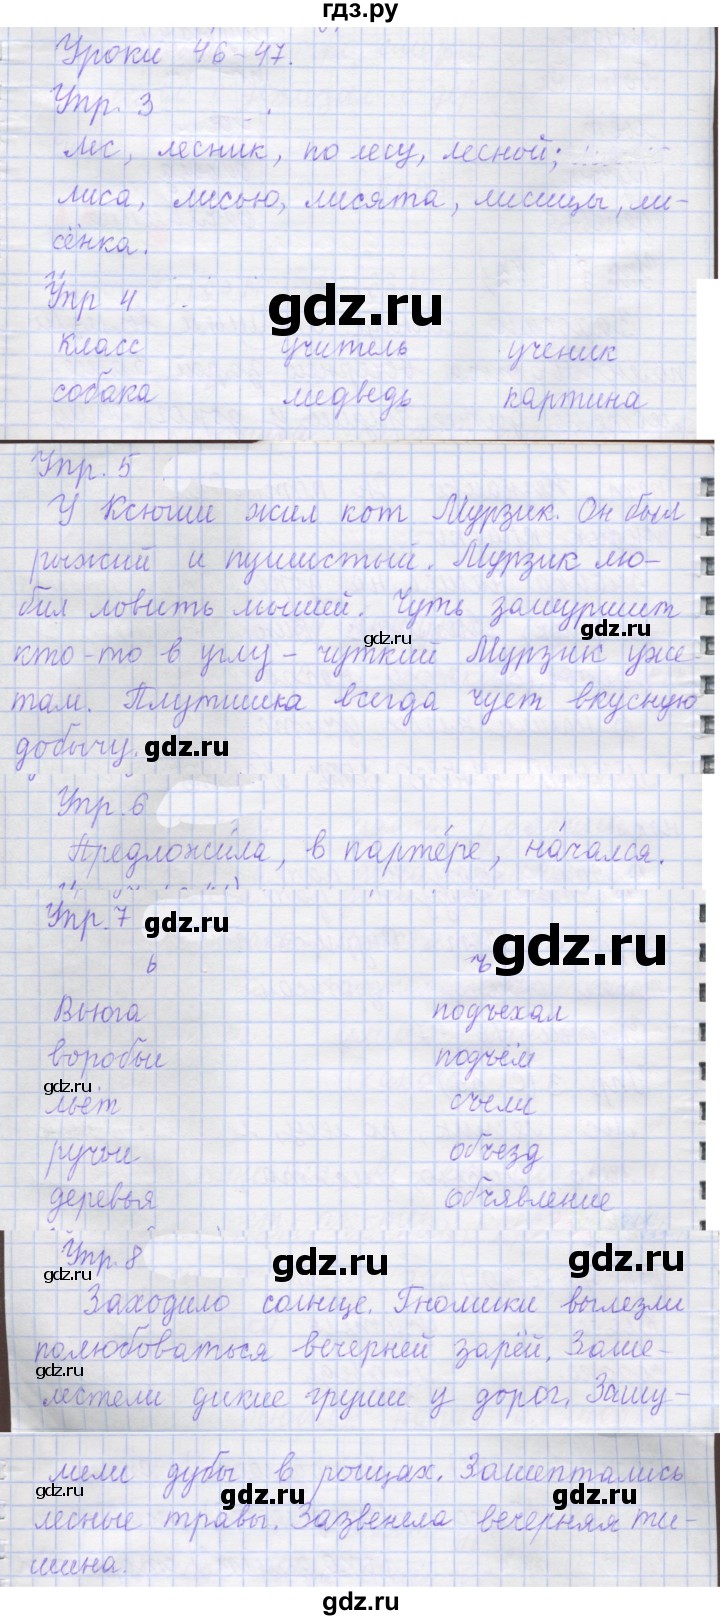 гдз.ру
Уроки 46-47.
Упр. 3
лес, лесник, по лесу, лесной;
лиса, лисью, лисята, лисицы, ли-
сёнка.
Упр 4
gdz.ru
класс учитель ученик
собака медведь картина
Упр. 5
У Ксюши жил кот Мурзик. Он был
рыжий и пушистый. Мурзик лю-
бил ловить мышей. Чуть зашуршит
gdz.ru
gdz.ru
кто-то в углу - чуткий Мурзик уже
там. Плутишка всегда чует вкусную
добычу. gdz.ru
Упр. 6
Предложи́ла, в парте́ре, на́чался.
Упр. 7 gdz.ru gdz.ru
ь ъ
Вьюга подъехал
воробьи подъём
gdz.ru
льёт съели
ручьи объезд
деревья объявление
Упр. 8 gdz.ru gdz.ru
gdz.ru
Заходило солнце. Гномики вылезли
полюбоваться вечерней зарёй. Заше-
gdz.ru
лестели дикие груши у дорог. Зашу-
мели дубы в рощах. Зашептались
gdz.ru gdz.ru gdz.ru
лесные травы. Зазвенела вечерняя ти-
шина.
gdz.ru